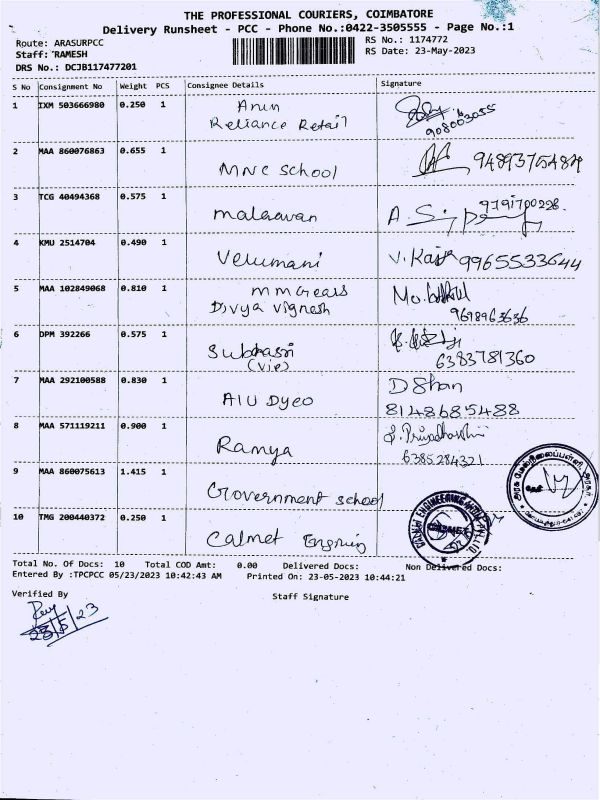 THE PROFESSIONAL COURIERS, COIMBATORE
Delivery Runsheet - PCC - Phone No.:0422-3505555 - Page No.:1
Route: ARASURPCC
RS No.: 1174772
Staff: RAMESH
RS Date: 23-May-2023
DRS No.: DCJB117477201
S No Consignment No Weight PCS Consignee Details Signature
1 IXM 503666980 0.250 1 Arun
Reliance Retail
908003055
2 MAA 860076863 0.655 1
MNC School
3 TCG 40494368 0.575 1
9791700228.
Malaravan
4 KMU 2514704 0.490 1
Velumani V. 9965533644
5 MAA 102849068 0.810 1 MM Gears
Divya Vignesh
9698963636
6 DPM 392266 0.575 1
(VIP) 6383781360
7 MAA 292100588 0.830 1
D Shan
8148685488
8 MAA 571119211 0.900 1
Ramya
6385284321
9 MAA 860075613 1.415 1
Government school
10 TMG 200440372 0.250 1
Calmet
Total No. Of Docs: 10 Total COD Amt: 0.00 Delivered Docs: Non Delivered Docs:
Entered By :TPCPCC 05/23/2023 10:42:43 AM Printed On: 23-05-2023 10:44:21
Verified By
Staff Signature
23/5/23